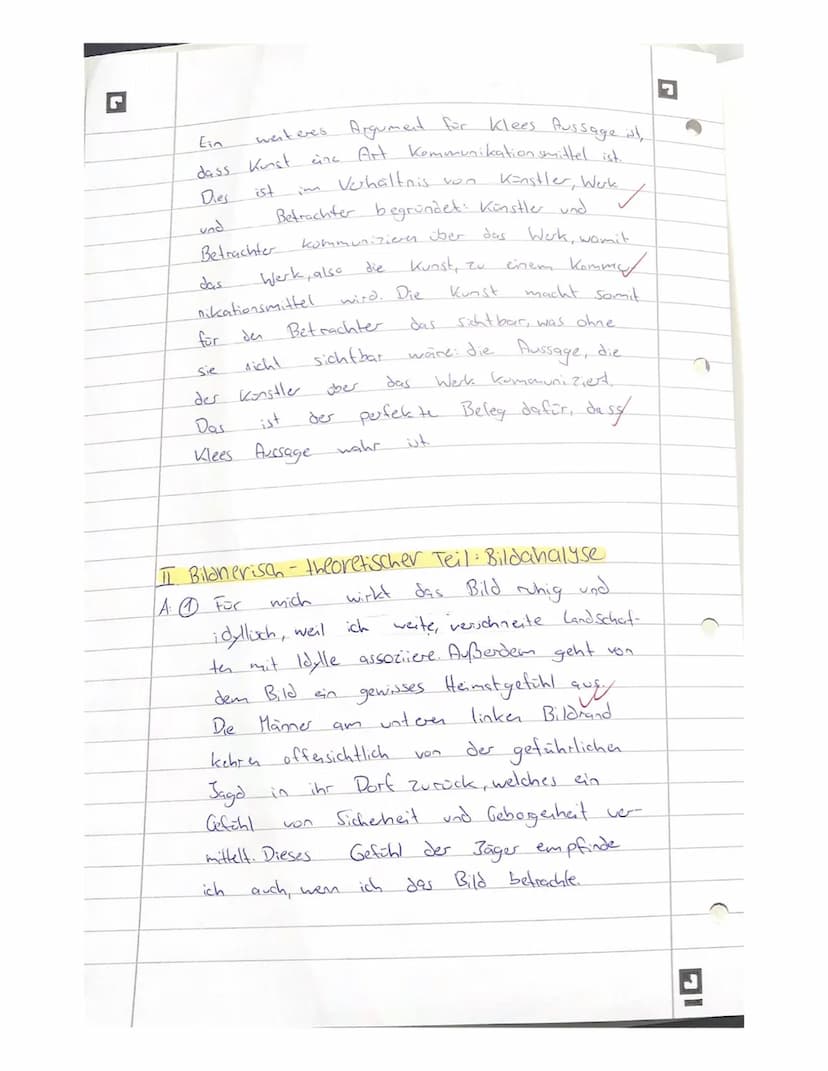 Ein weiteres Argument für Klees Aussage ist,
dass Kunst eine Art Kommunikationsmittel ist.
Dies ist im Verhältnis von Künstler, Werk
und Betrachter begründet: Künstler und
Betrachter kommunizieren über das Werk, womit
das Werk, also die Kunst, zu einem Kommu-
nikationsmittel wird. Die Kunst macht somit
für den Betrachter das sichtbar, was ohne
sie nicht sichtbar wäre: die Aussage, die
der Künstler über das Werk kommuniziert.
Das ist der perfekte Beleg dafür, dass
Klees Aussage wahr ist
II Bildnerisch-theoretischer Teil: Bildanalyse
A: ① Für mich wirkt das Bild ruhig und
idyllisch, weil ich weite, verschneite Landschaf-
ten mit Idylle assoziiere. Außerdem geht von
dem Bild ein gewisses Heimatgefühl aus.
Die Männer am unteren linken Bildrand
kehren offensichtlich von der gefährlichen
Jagd in ihr Dorf zurück, welches ein
Gefühl von Sicherheit und Geborgenheit ver-
mittelt. Dieses Gefühl der Jäger empfinde
ich auch, wenn ich das Bild betrachte.